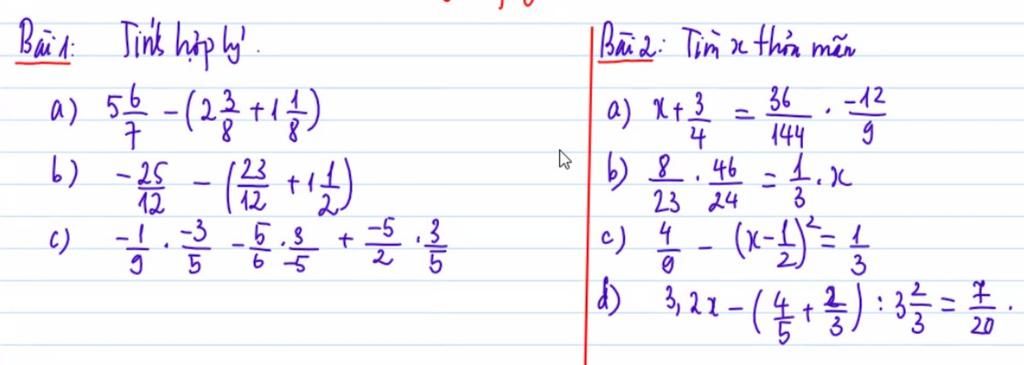 Bài 1: Tính hợp lý.
a) 5 6/7 - (2 3/8 + 1 1/8)
b) -25/12 - (23/12 + 1 1/2)
c) -1/9 . -3/5 - 5/6 . 3/-5 + -5/2 . 3/5
Bài 2: Tìm x thỏa mãn
a) x + 3/4 = 36/144 . -12/9
b) 8/23 . 46/24 = 1/3 . x
c) 4/9 - (x - 1/2)² = 1/3
d) 3,2x - (4/5 + 2/3) : 3 2/3 = 7/20.